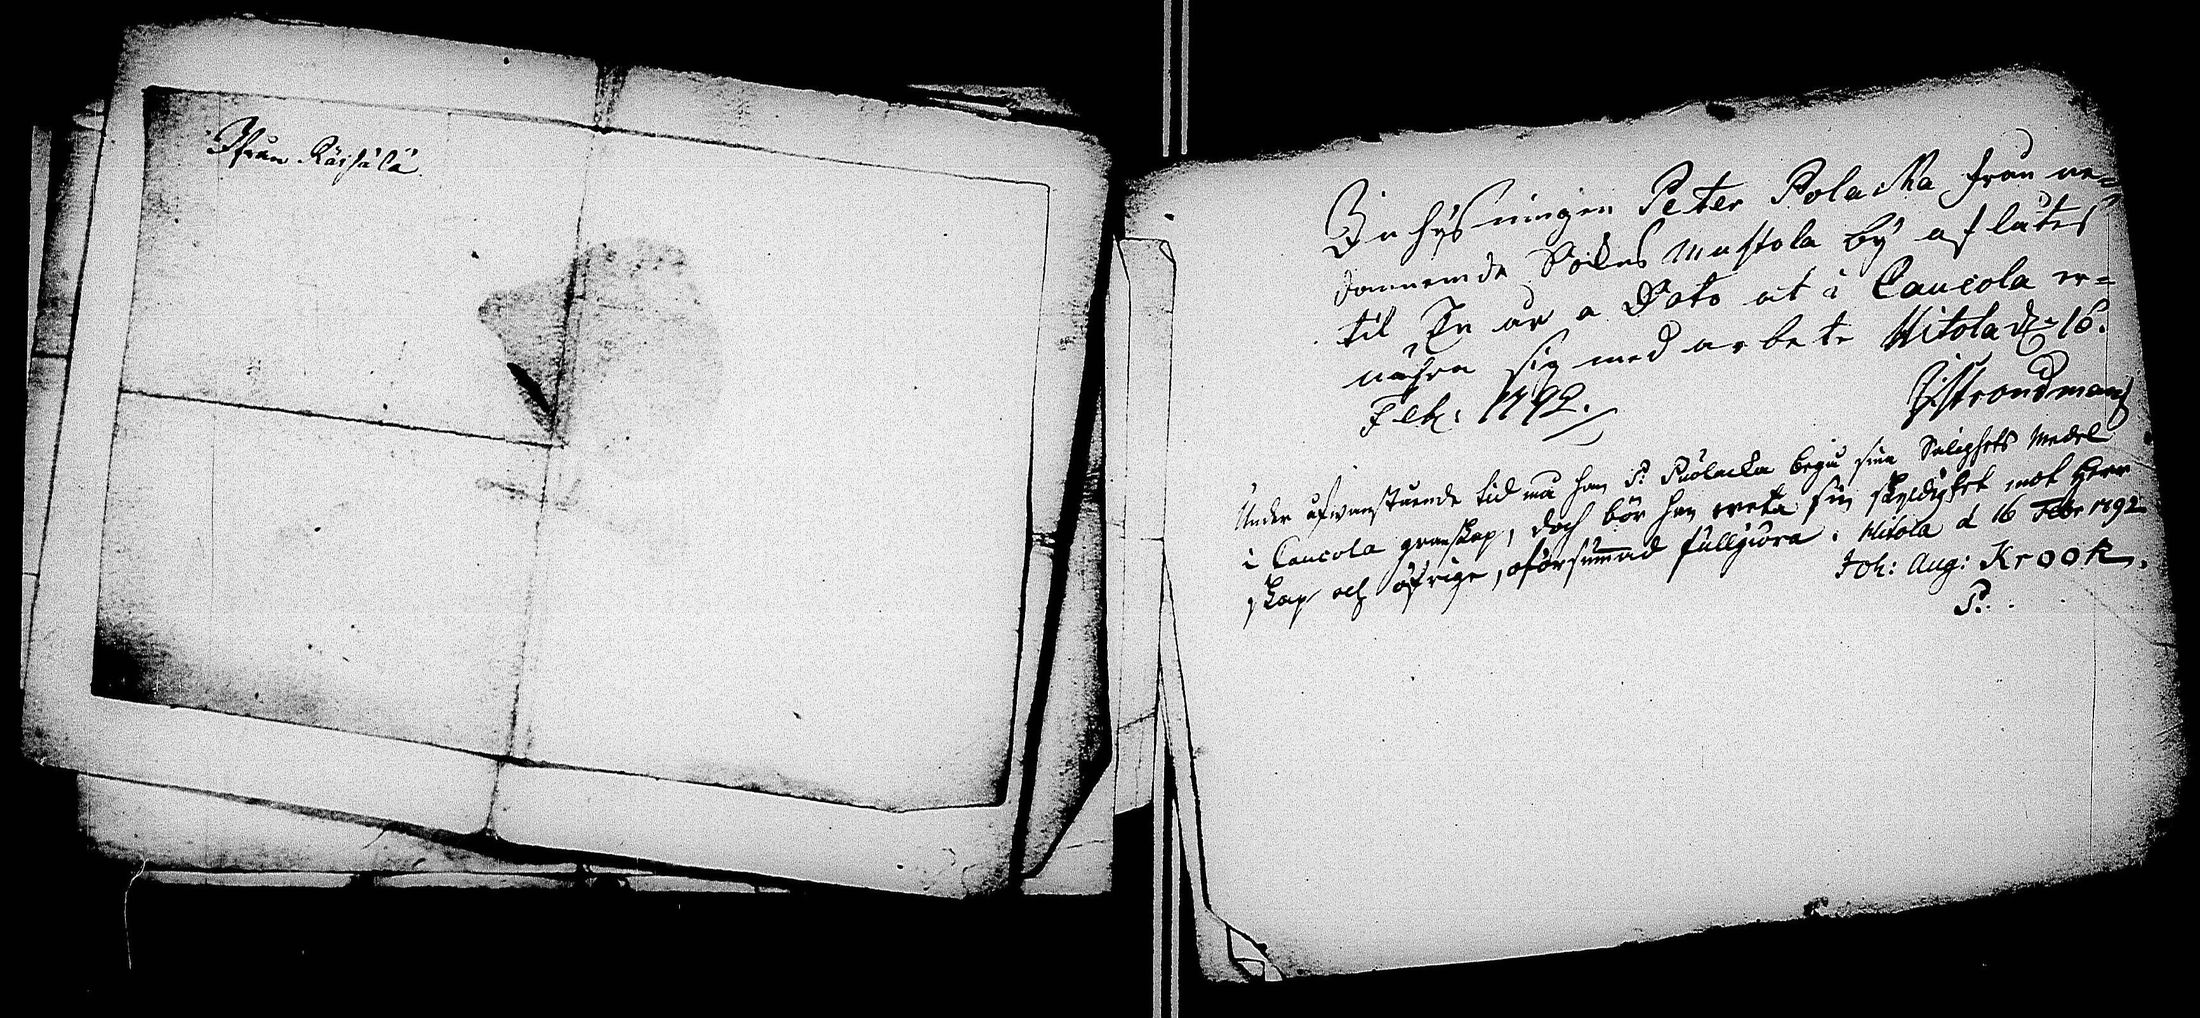 Ifrån Räisälä
Inhysningen Peter Polacka från ne=
dannemde Sokns Mustola by aflåtes
til En år a Dato at i Caucola er=
nähra sig med arbete Hitola d. 16.
Feb: 1792.
Strandman
Under ofvanstående tid må han P: Puolacka begå sina Salighets Medel
i Caucola granskap, doch bör han veta sin skyldighet mot Herr
skap och öfrige, oförsummad fullgiöra. Hitola d 16 Febr 1792
Joh: Aug: Krook.
P.